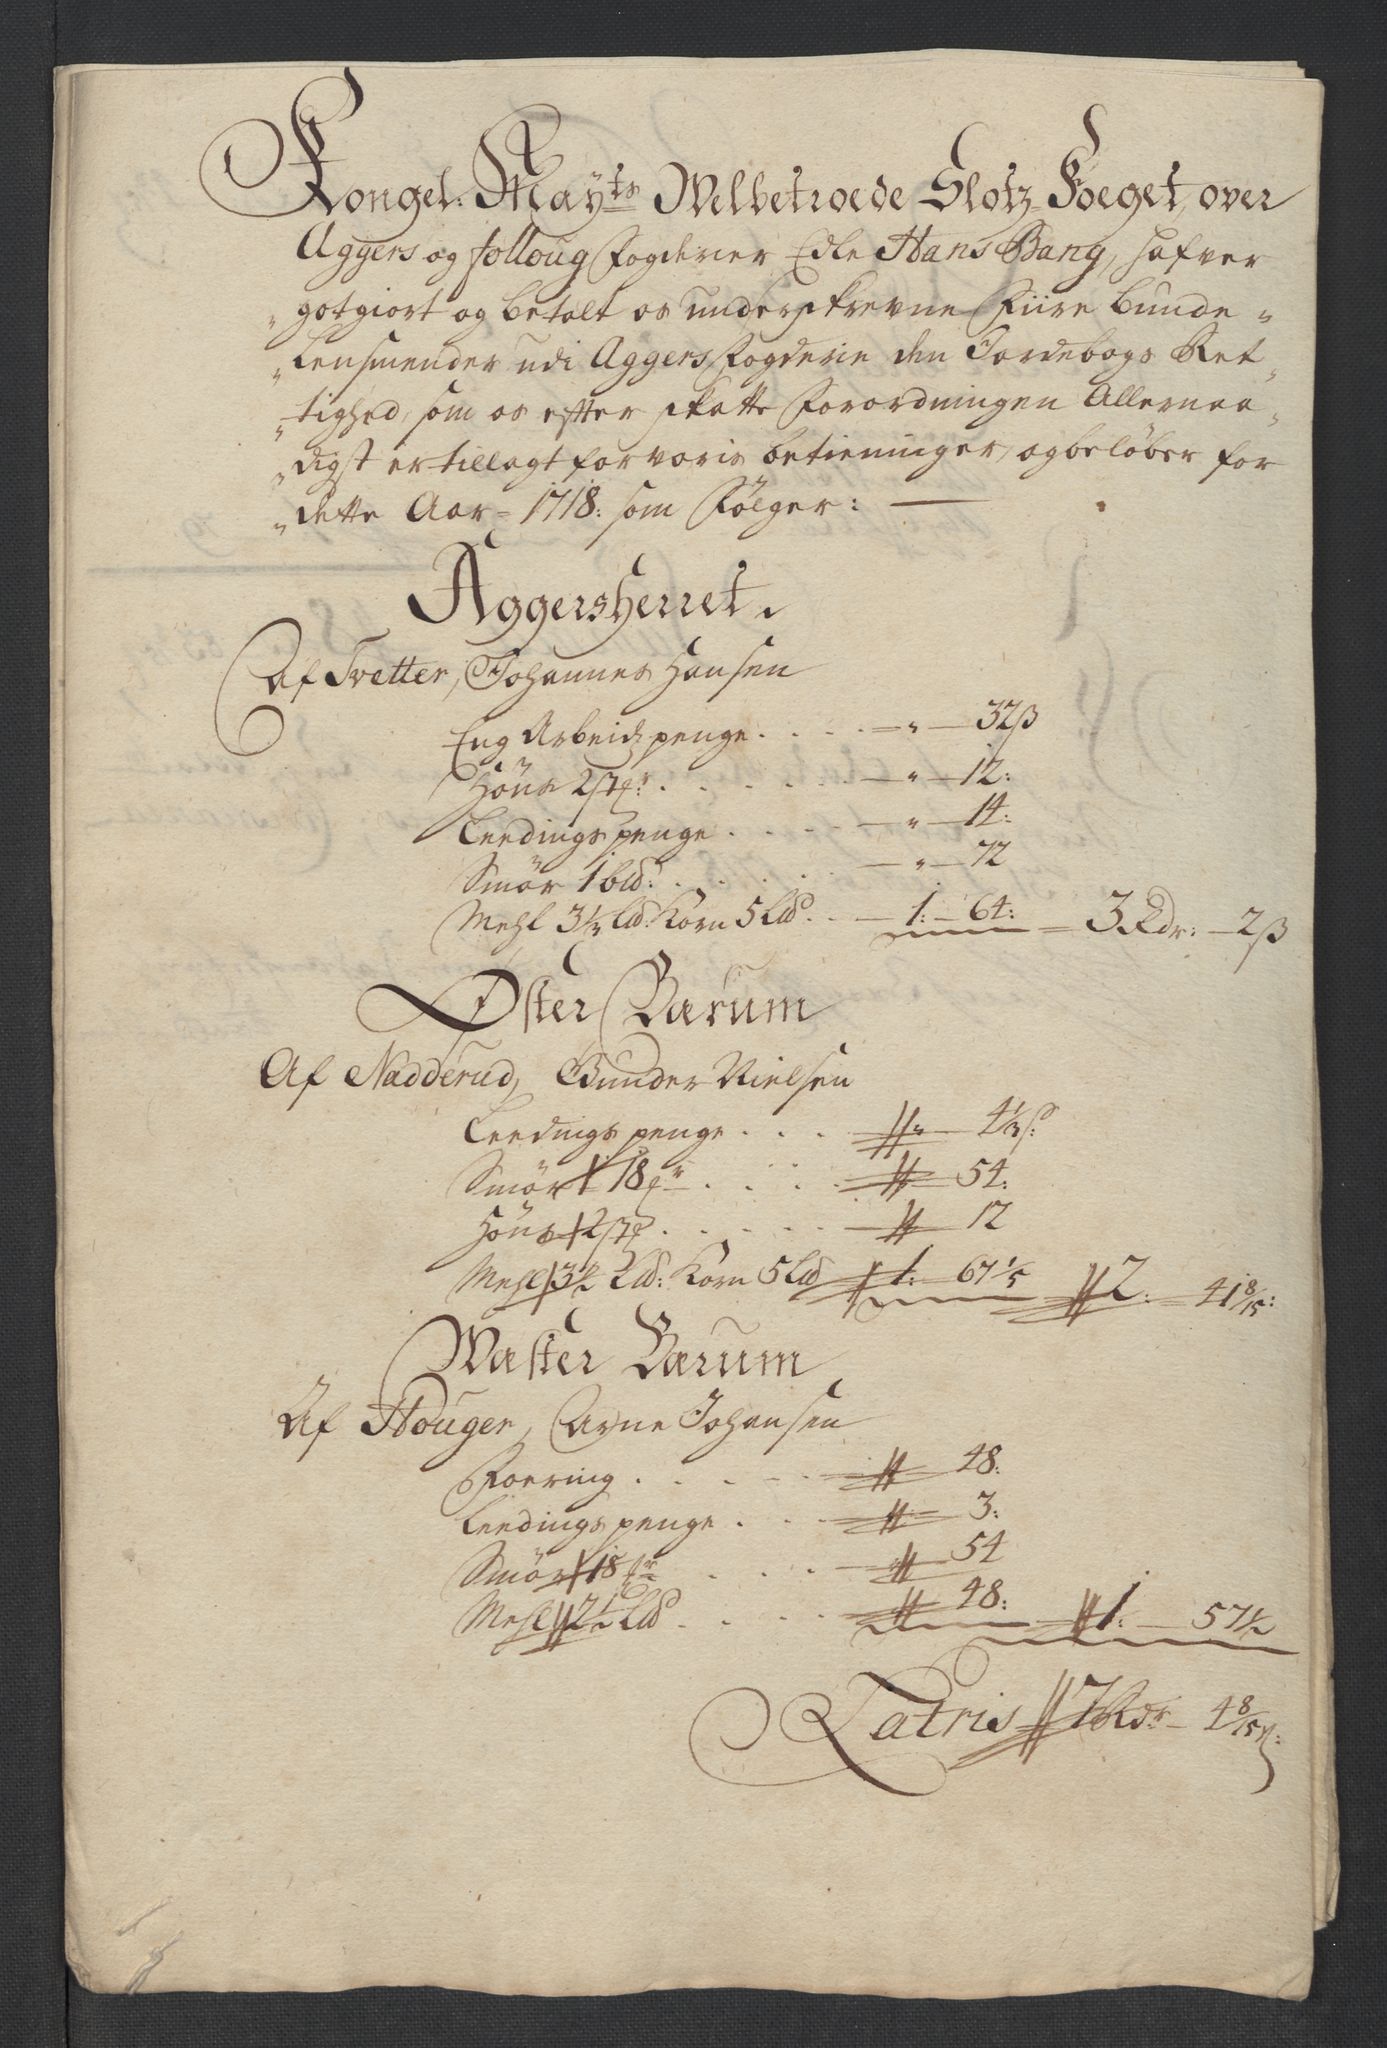 Kongel: Mayts Velbetroede Slotz Foeget, over
Aggers og folloug Fogderier Edle Hans Bang, hafver
gotgiort og betalt os underskrevne Fiire bunde
Lensmender udi Aggers Fogderie den Jordebogs Ret
tighed, som os efter skatte Forordningen Allernaa
digst er tillagt for voris betieninger, og beløber for
dette Aar = 1718: som Følger:
Aggersherret.
Af Tvetter, Johannes Hansen
Eng Arbeidz penge . . . . — " — 32 ß
Høns 2 st: . . . . — " — 12:
Leedings penge . . . . — " — 14:
Smør 1 bld: . . . . — " — 72
Mehl 3 1/3 Ld: Korn 5 Ld . . — 1: — 64: = 3 Rdr: — 2 ß
Øster Bærum
Af Nadderud, Gunder Nielsen
Leedings penge . . . — 4 1/3 ß:
Smør 18 . . . . — 54:
Høns 2 st . . . . — 12
Mehl 3 1/2 Ld: Korn 5 Ld 1: 67 1/5 — 2: — 41 8/15:
Wæster Bærum
Af Houger, Arne Johansen
Foering . . . . — 48:
Leedings penge . . . — 3:
Smør 18 . . . — 54
Mehl 2 1/2 Ld . . . — 48: — 1: — 57 1/2
Latris 7 Rdr — 4 8/15 ß: